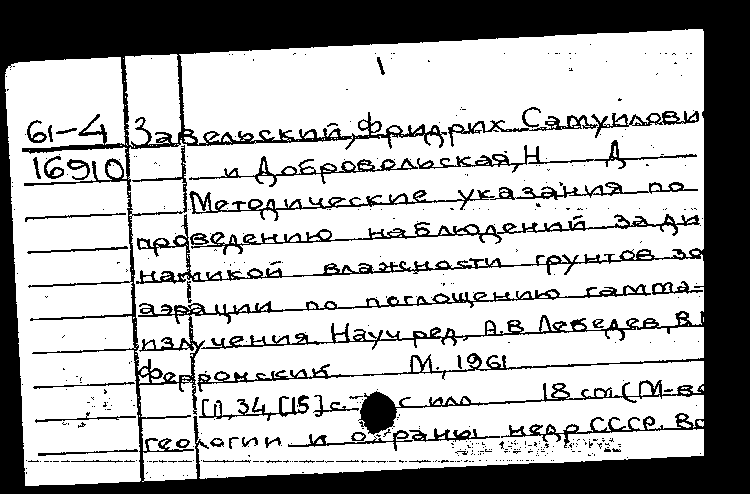 1
61-4 Завельский, Фридрих Самуилови
16910 и Добровольская, Н Д.
Методические указания по
проведению наблюдений за ди
намикой влажности грунтов зо
аэрации по поглощению гамма-
излучения. Науч ред. А.В Лебедев, В.
Ферронский М., 1961
[1], 34, [15] с. с илл 18 см. (М-во
геологии и охраны недр СССР. Вс